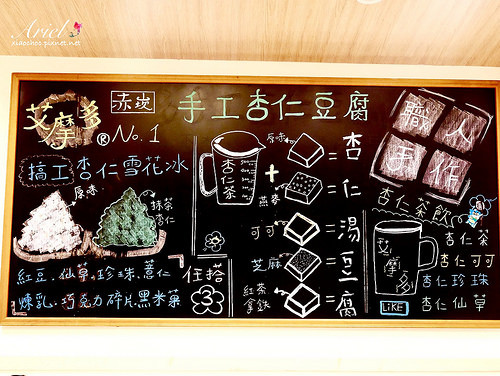 Ariel
aiaochoo.pixnet.net
艾摩多
® No. 1
赤崁
手工杏仁豆腐
職人手作
搞工杏仁雪花冰
原味
抹茶杏仁
紅豆、仙草、珍珠、薏仁
煉乳、巧克力碎片、黑米菓
任搭
3
杏仁茶
+
原味
= 杏
燕麥
= 仁
可可
= 湯
芝麻
= 豆
紅茶拿鐵
= 腐
杏仁茶飲
艾摩多
LIKE
杏仁茶
杏仁可可
杏仁珍珠
杏仁仙草